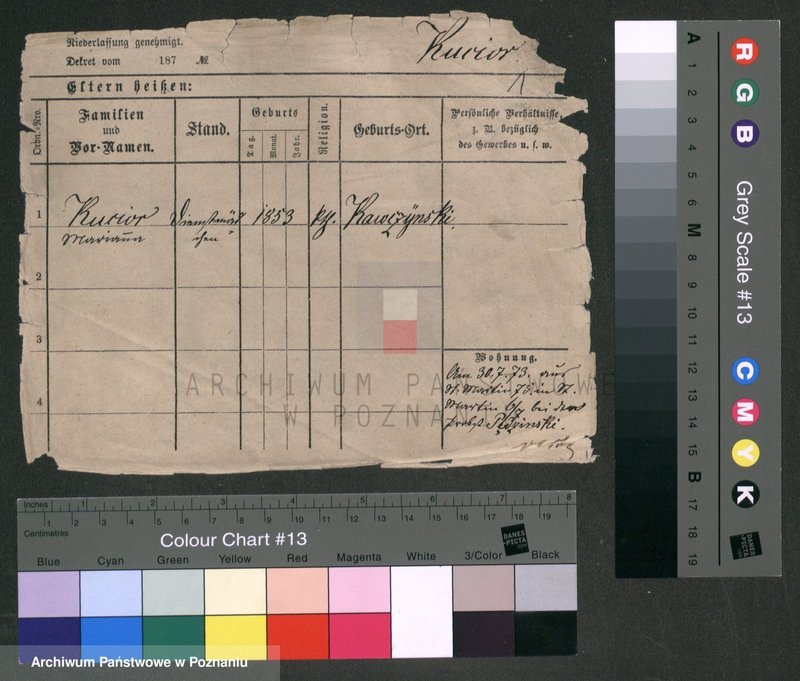 Niederlassung genehmigt.
Kucior
Dekret vom 187 №
Eltern heißen:
Ordn.-Nro.
Familien
und
Vor-Namen.
Stand.
Geburts
Tag.
Monat.
Jahr.
Religion.
Geburts-Ort.
Persönliche Verhältnisse,
z. B. bezüglich
des Gewerbes u. s. w.
1 Kucior Dienstmäd 1853 kth. Kawczÿnski.
Marianna chen"
2
3
4
Wohnung.
Am 30.7.73. aus
St. Martin 75 in St.
Martin 6/7 bei dem
Probst
ARCHIWUM PAŃSTWOWE
W POZNANIU
Inches 1 2 3 4 5 6 7 8
Centimetres 1 2 3 4 5 6 7 8 9 10 11 12 13 14 15 16 17 18 19
Colour Chart #13
DANES
-PICTA
.COM
Blue Cyan Green Yellow Red Magenta White 3/Color Black
Archiwum Państwowe w Poznaniu
A 1 2 3 4 5 6 M 8 9 10 11 12 13 14 15 B 17 18 19
R G B
Grey Scale #13
C M Y K
DANES
-PICTA
.COM